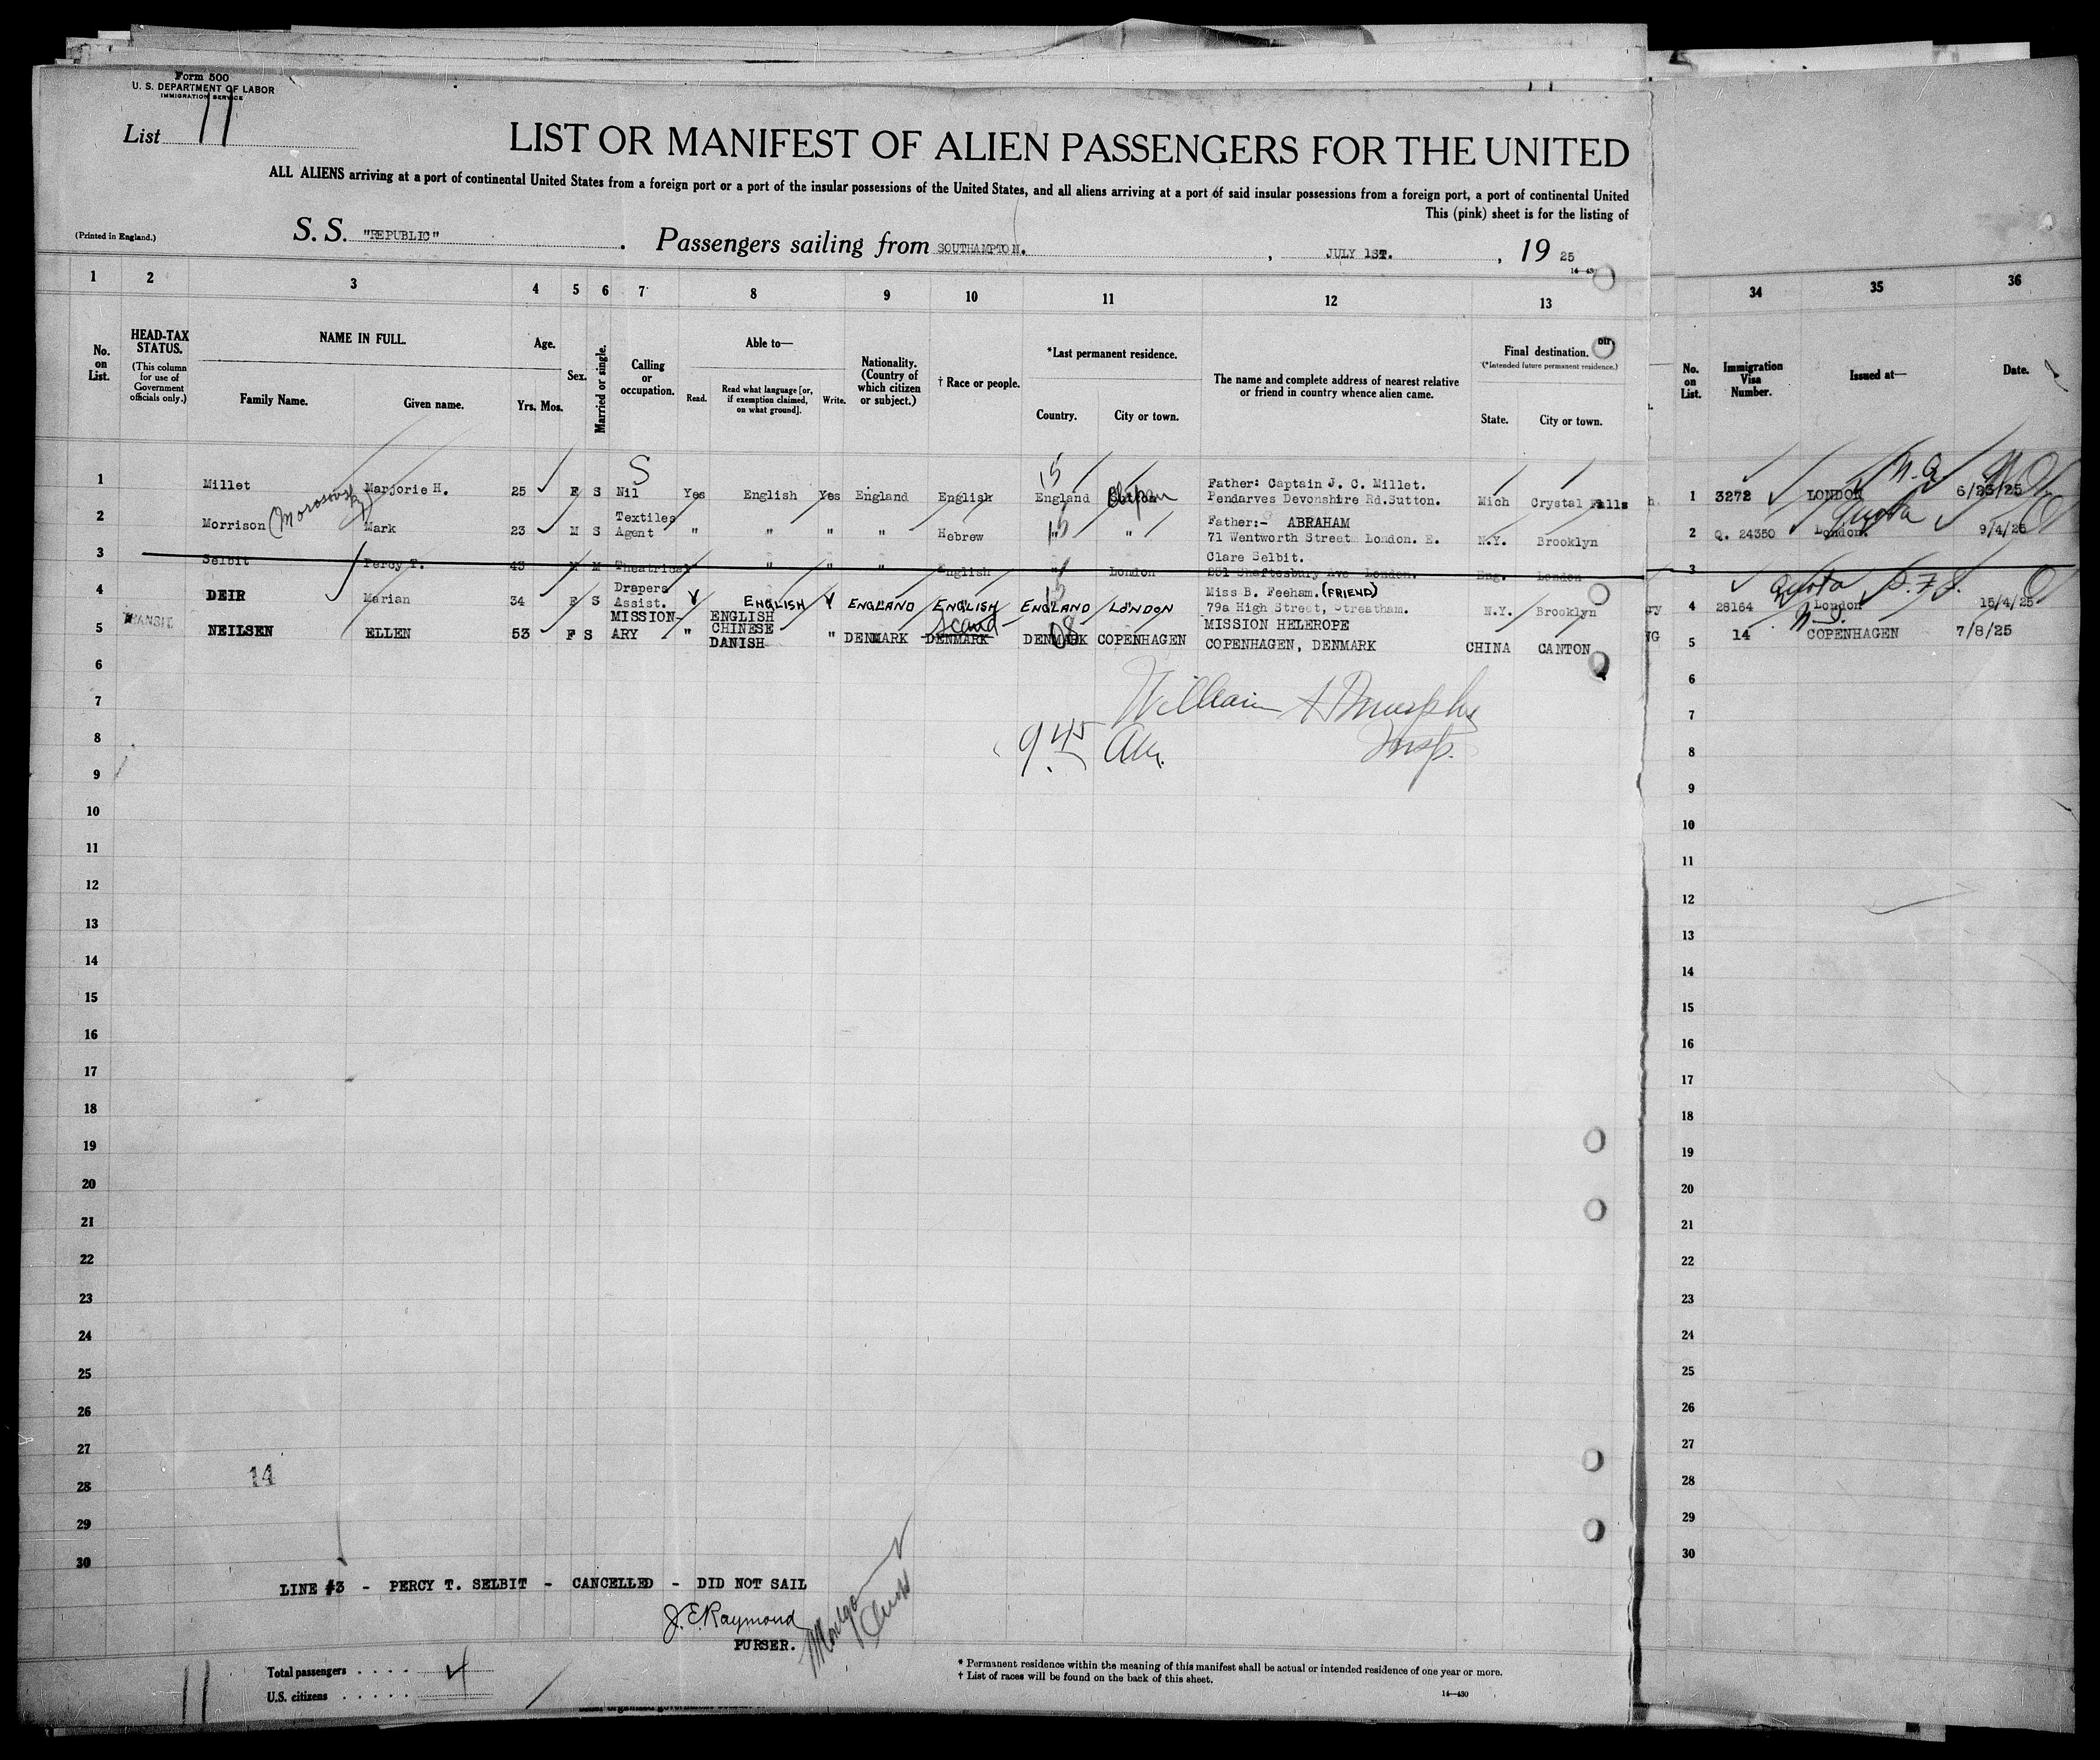 Form 500
U. S. DEPARTMENT OF LABOR
IMMIGRATION SERVICE
List 11
LIST OR MANIFEST OF ALIEN PASSENGERS FOR THE UNITED
ALL ALIENS arriving at a port of continental United States from a foreign port or a port of the insular possessions of the United States, and all aliens arriving at a port of said insular possessions from a foreign port, a port of continental United
This (pink) sheet is for the listing of
(Printed in England.) S. S. "REPUBLIC" . Passengers sailing from SOUTHAMPTON. , JULY 1ST. , 19 25
14—43
1 2 3 4 5 6 7 8 9 10 11 12 13 34 35 36
No. on List.
HEAD-TAX STATUS.
(This column for use of Government officials only.)
NAME IN FULL.
Family Name. Given name.
Age.
Yrs. Mos.
Sex.
Married or single.
Calling or occupation.
Able to—
Read. Read what language [or, if exemption claimed, on what ground]. Write.
Nationality. (Country of which citizen or subject.)
† Race or people.
*Last permanent residence.
Country. City or town.
The name and complete address of nearest relative or friend in country whence alien came.
Final destination.
(*Intended future permanent residence.)
State. City or town.
No. on List.
Immigration Visa Number.
Issued at—
Date.
S 15 N.Q.
1 Millet Marjorie H. 25 F S Nil Yes English Yes England English England Father: Captain J. C. Millet. Pendarves Devonshire Rd.Sutton. Mich Crystal Falls 1 3272 LONDON 6/23/25
2 Morrison (Morosovsky) Mark 23 M S Textiles Agent " " " " Hebrew " " Father:- ABRAHAM 71 Wentworth Street London. E. N.Y. Brooklyn 2 Q. 24350 London. Quota 9/4/25
3 Selbit Percy T. 43 M M Theatrical " " " English " London Clare Selbit. Shaftesbury Ave London. Eng. London 3
4 DEIR Marian 34 F S Drapers Assist. Y ENGLISH Y ENGLAND ENGLISH ENGLAND LONDON Miss B. Feeham. (FRIEND) 79a High Street, Streatham. N.Y. Brooklyn 4 28164 London Quota 15/4/25
5 TRANSIT NEILSEN ELLEN 53 F S MISSION-ARY " ENGLISH CHINESE DANISH " DENMARK DENMARK Scand DENMARK 08 COPENHAGEN MISSION HELEROPE COPENHAGEN, DENMARK CHINA CANTON 5 14 COPENHAGEN 7/8/25
6 6
William A Murphy
7 7
9 45 AM. Insp.
8 8
9 9
10 10
11 11
12 12
13 13
14 14
15 15
16 16
17 17
18 18
19 19
20 20
21 21
22 22
23 23
24 24
25 25
26 26
27 27
14
28 28
29 29
30 30
LINE #3 - PERCY T. SELBIT - CANCELLED - DID NOT SAIL
J. E. Raymond
PURSER.
11
Total passengers . . . . 4
U.S. citizens . . . . .
* Permanent residence within the meaning of this manifest shall be actual or intended residence of one year or more.
† List of races will be found on the back of this sheet.
14—430